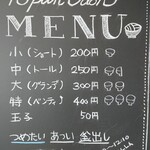 MENU
小（ショート） 200円
中（トール） 250円
大（グランデ） 300円
特（ベンティ） 400円
玉子 50円
つめたい あつい 釜出し